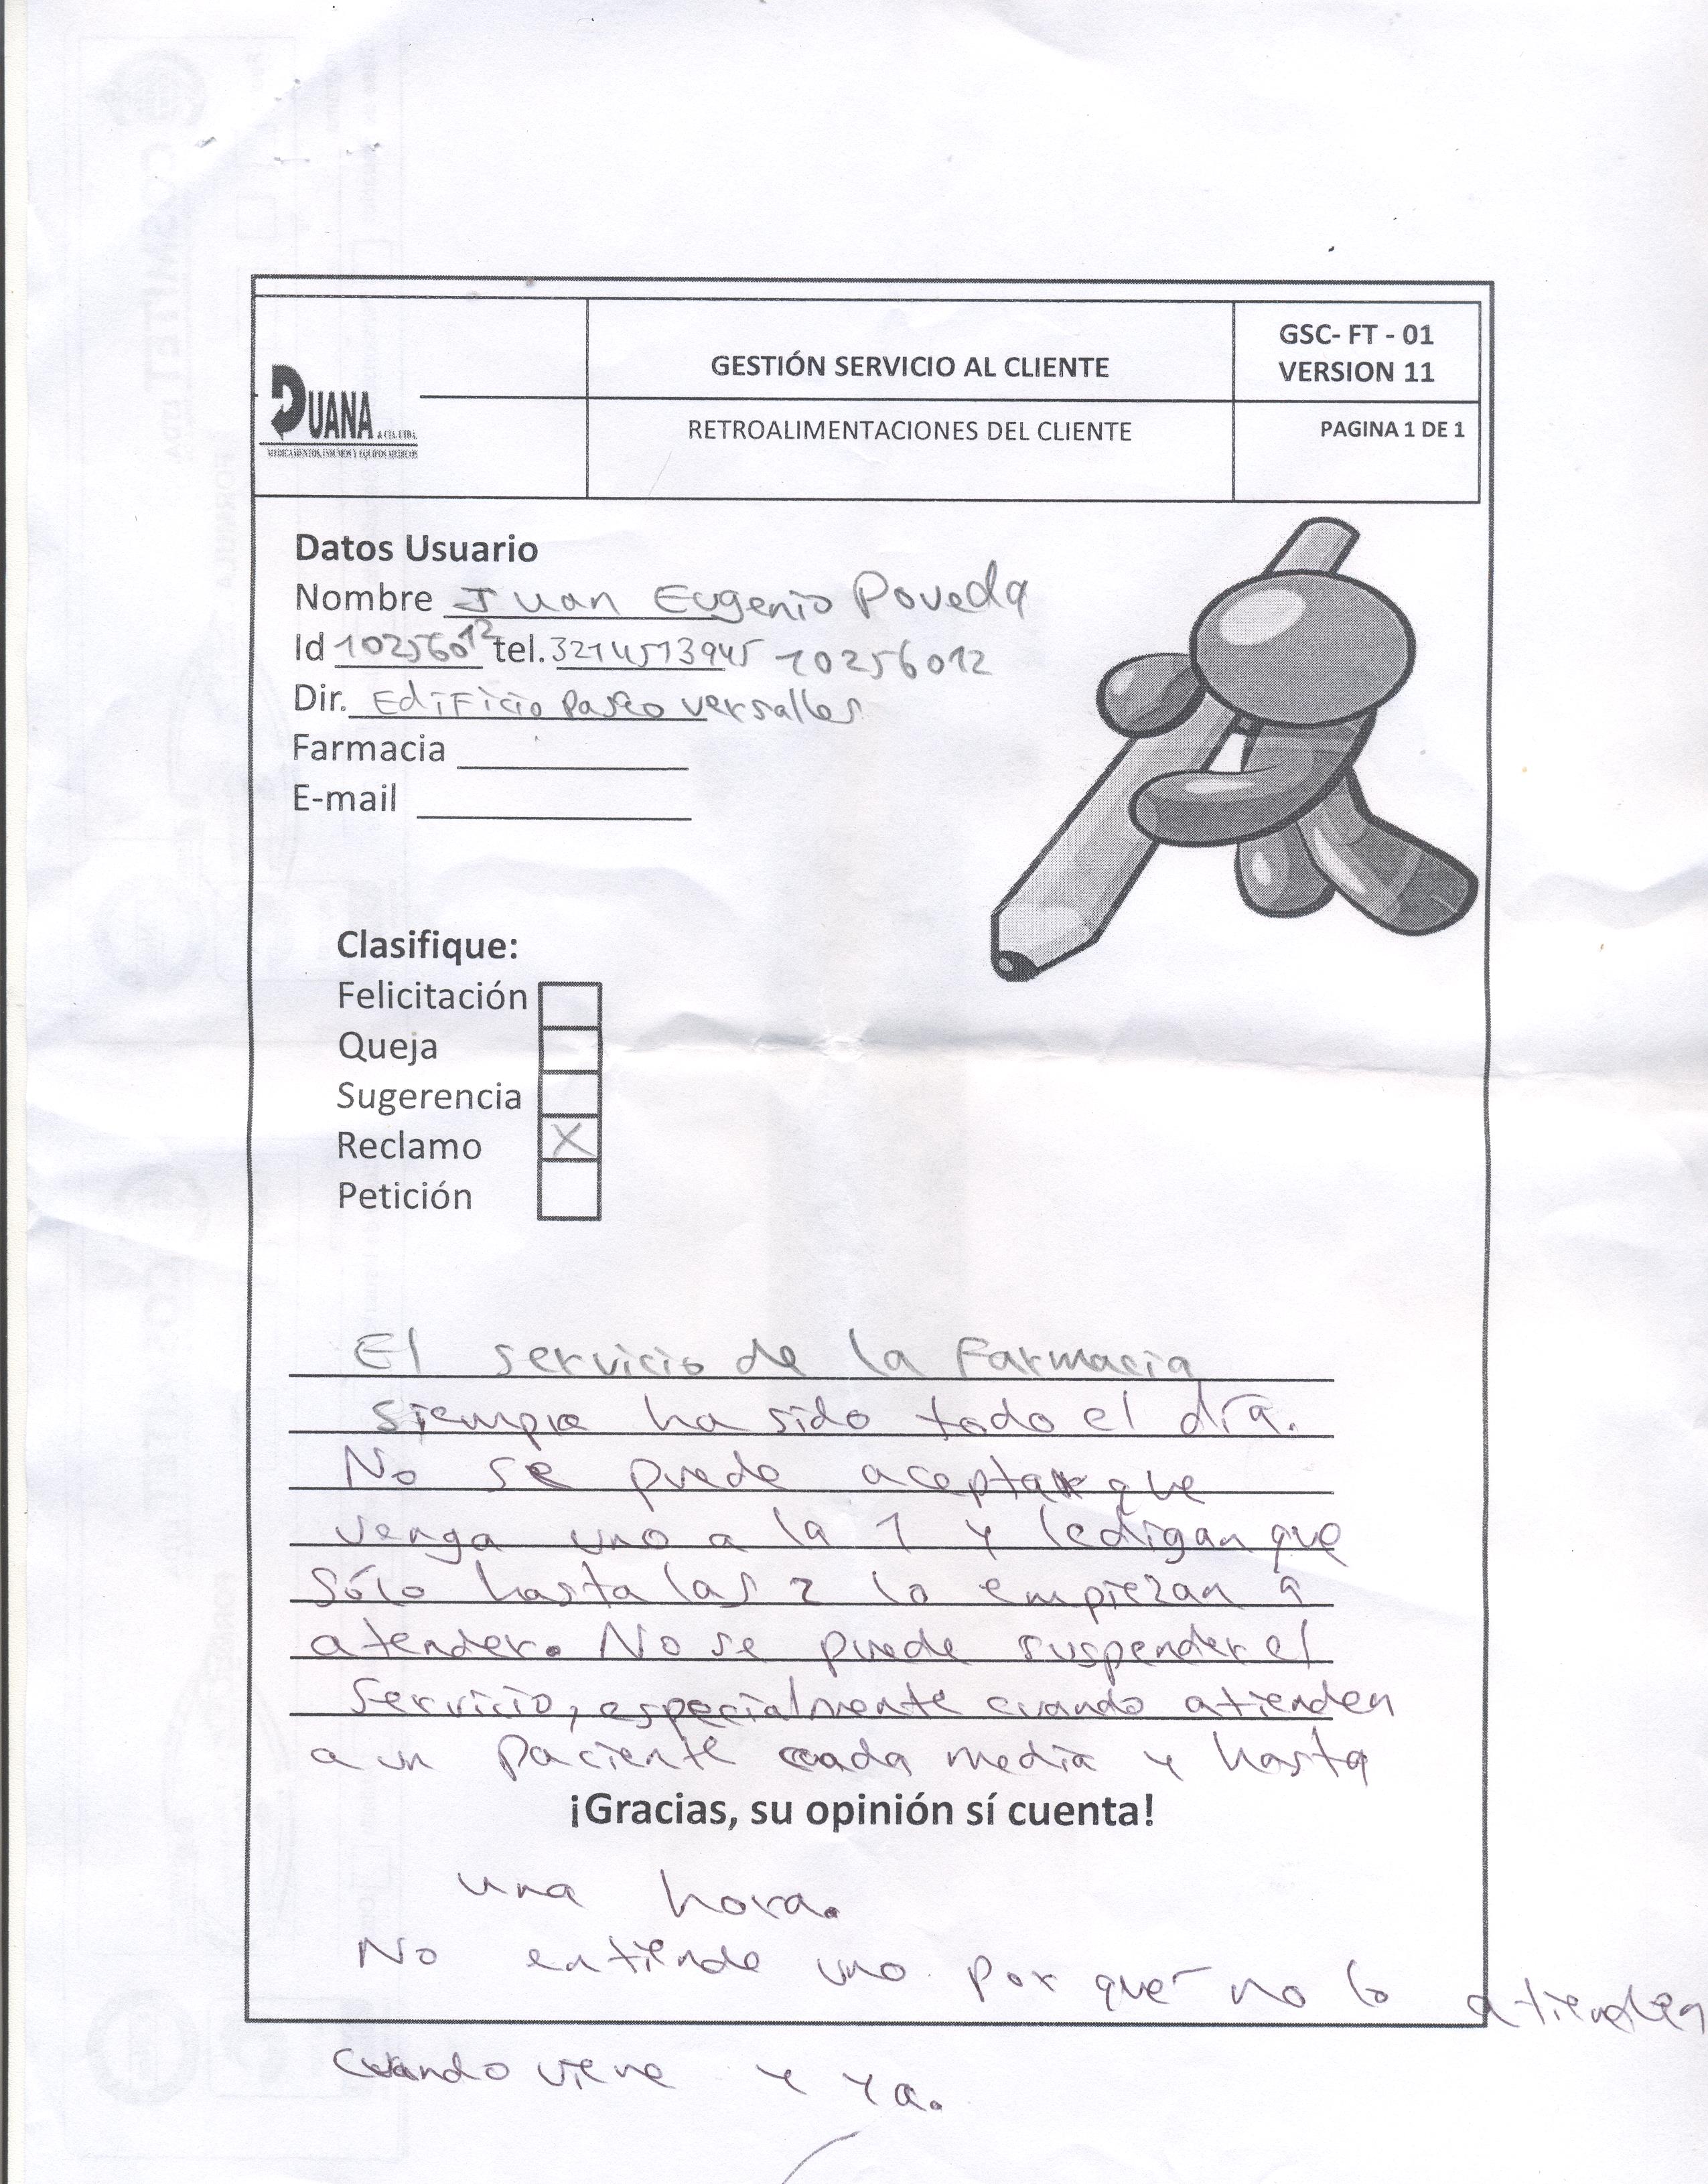 GESTIÓN SERVICIO AL CLIENTE
GSC- FT - 01
VERSION 11
DUANA & CIA. LTDA.
MEDICAMENTOS, INSUMOS Y EQUIPOS MEDICOS
RETROALIMENTACIONES DEL CLIENTE
PAGINA 1 DE 1
Datos Usuario
Nombre Juan Eugenio Poveda
Id 10256012 tel. 3214513945 10256012
Dir. Edificio Paseo Versalles
Farmacia
E-mail
Clasifique:
Felicitación
Queja
Sugerencia
Reclamo X
Petición
El servicio de la Farmacia
siempre ha sido todo el día.
No se puede aceptar que
venga uno a la 1 y le digan que
sólo hasta las 2 lo empiezan a
atender. No se puede suspender el
servicio, especialmente cuando atienden
a un paciente cada media y hasta
¡Gracias, su opinión sí cuenta!
una hora.
No entiende uno por qué no lo atienden
cuando viene y ya.